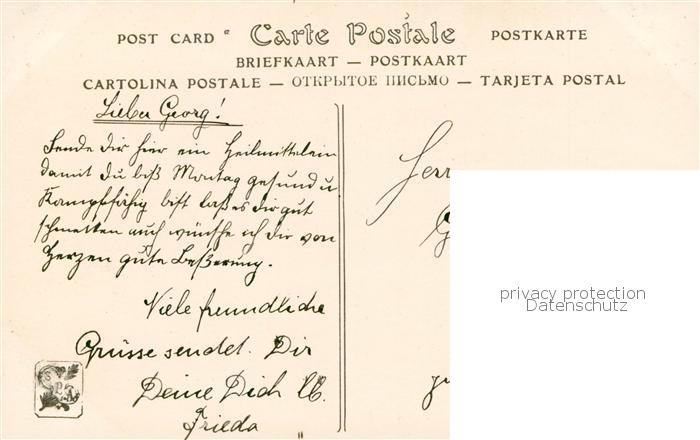 POST CARD Carte Postale POSTKARTE
BRIEFKAART — POSTKAART
CARTOLINA POSTALE — ОТКРЫТОЕ ПИСЬМО — TARJETA POSTAL
Lieber Georg!
Sende dir hier ein Heilmittelein
damit du biß Montag gesund u
Kampffähig bist laß es dir gut
schmecken auch wünsche ich dir von
Herzen gute Beßerung.
Viele freundliche
Grüsse sendet Dir
Deine Dich lb.
Frieda
Herr
privacy protection
Datenschutz